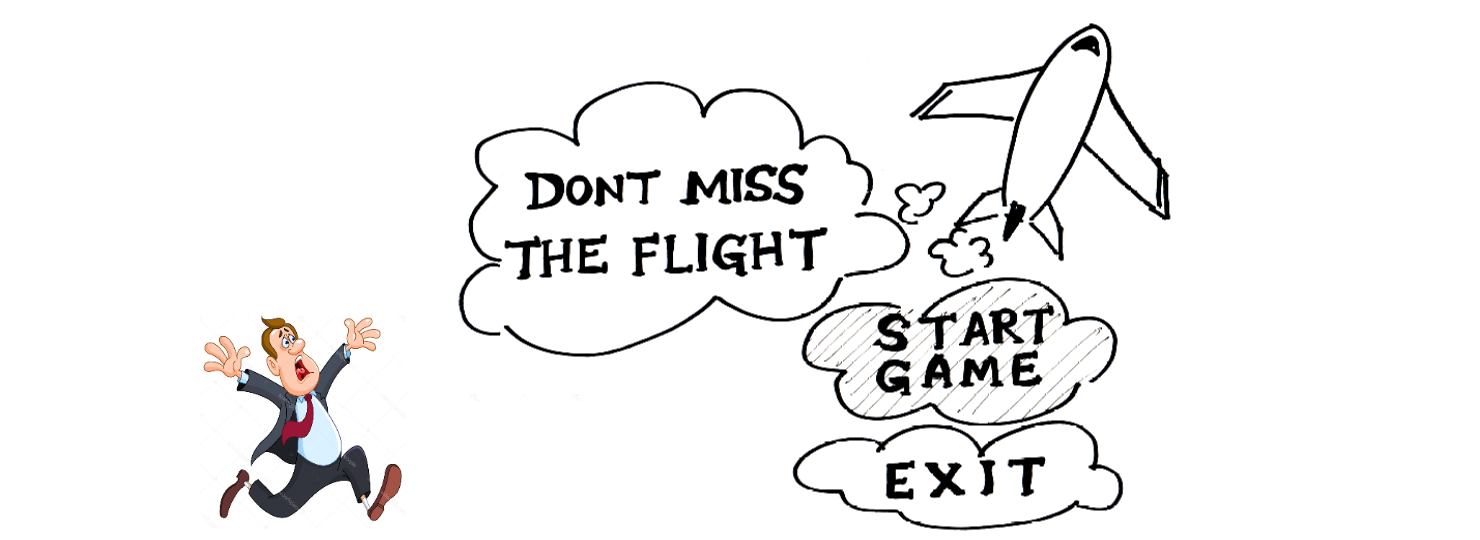 DONT MISS
THE FLIGHT
START
GAME
EXIT